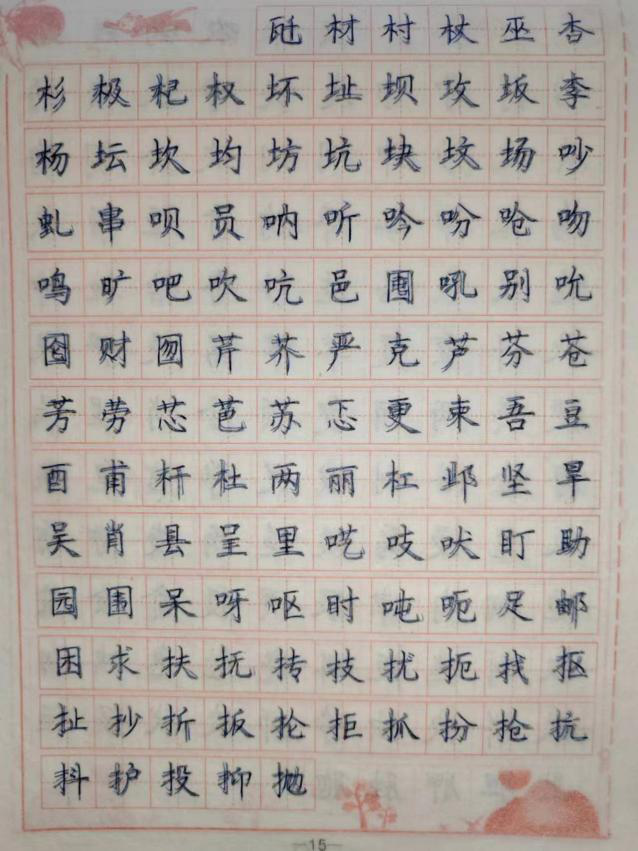 瓩材村杖巫杏
杉极杞权坏址坝攻坂李
杨坛坎均坊坑块坟场吵
虬串呗员呐听吟吩呛吻
鸣旷吧吹吭邑囤吼别吮
囵财囫芹芥严克芦芬苍
芳劳芯芭苏忑更束吾豆
酉甫杆杜两丽杠邺坚旱
吴肖县呈里呓吱吠盯助
园围呆呀呕时吨呃足邮
困求扶抚抟技扰扼找抠
扯抄折扳抡拒抓扮抢抗
抖护投抑抛
15